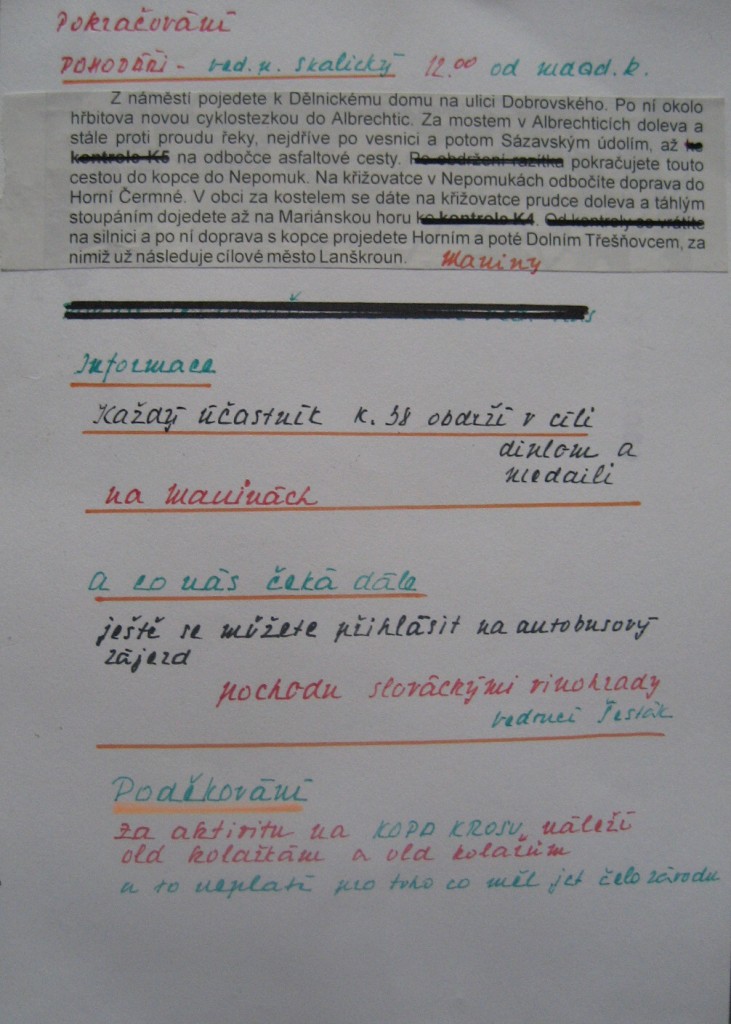 Pokračování
POHODÁŘI - ved. p. Skalický 12.00 od maod. k.
Z náměstí pojedete k Dělnickému domu na ulici Dobrovského. Po ní okolo
hřbitova novou cyklostezkou do Albrechtic. Za mostem v Albrechticích doleva a
stále proti proudu řeky, nejdříve po vesnici a potom Sázavským údolím, až ke
kontrole K5 na odbočce asfaltové cesty. Po obdržení razítka pokračujete touto
cestou do kopce do Nepomuk. Na křižovatce v Nepomukách odbočíte doprava do
Horní Čermné. V obci za kostelem se dáte na křižovatce prudce doleva a táhlým
stoupáním dojedete až na Mariánskou horu ke kontrole K4. Od kontroly se vrátíte
na silnici a po ní doprava s kopce projedete Horním a poté Dolním Třešňovcem, za
nimiž už následuje cílové město Lanškroun. Maniny
Informace
Každý účastník k. 38 obdrží v cíli
diplom a
medaili
na maninách
a co nás čeká dále
ještě se můžete přihlásit na autobusový
zájezd
pochodu slováckými vinohrady
vedoucí Šesták
Poděkování
za aktivitu na KOPA KROSU náleží
old kolařkám a old kolařům
a to neplatí pro toho co měl jet čelo závodu